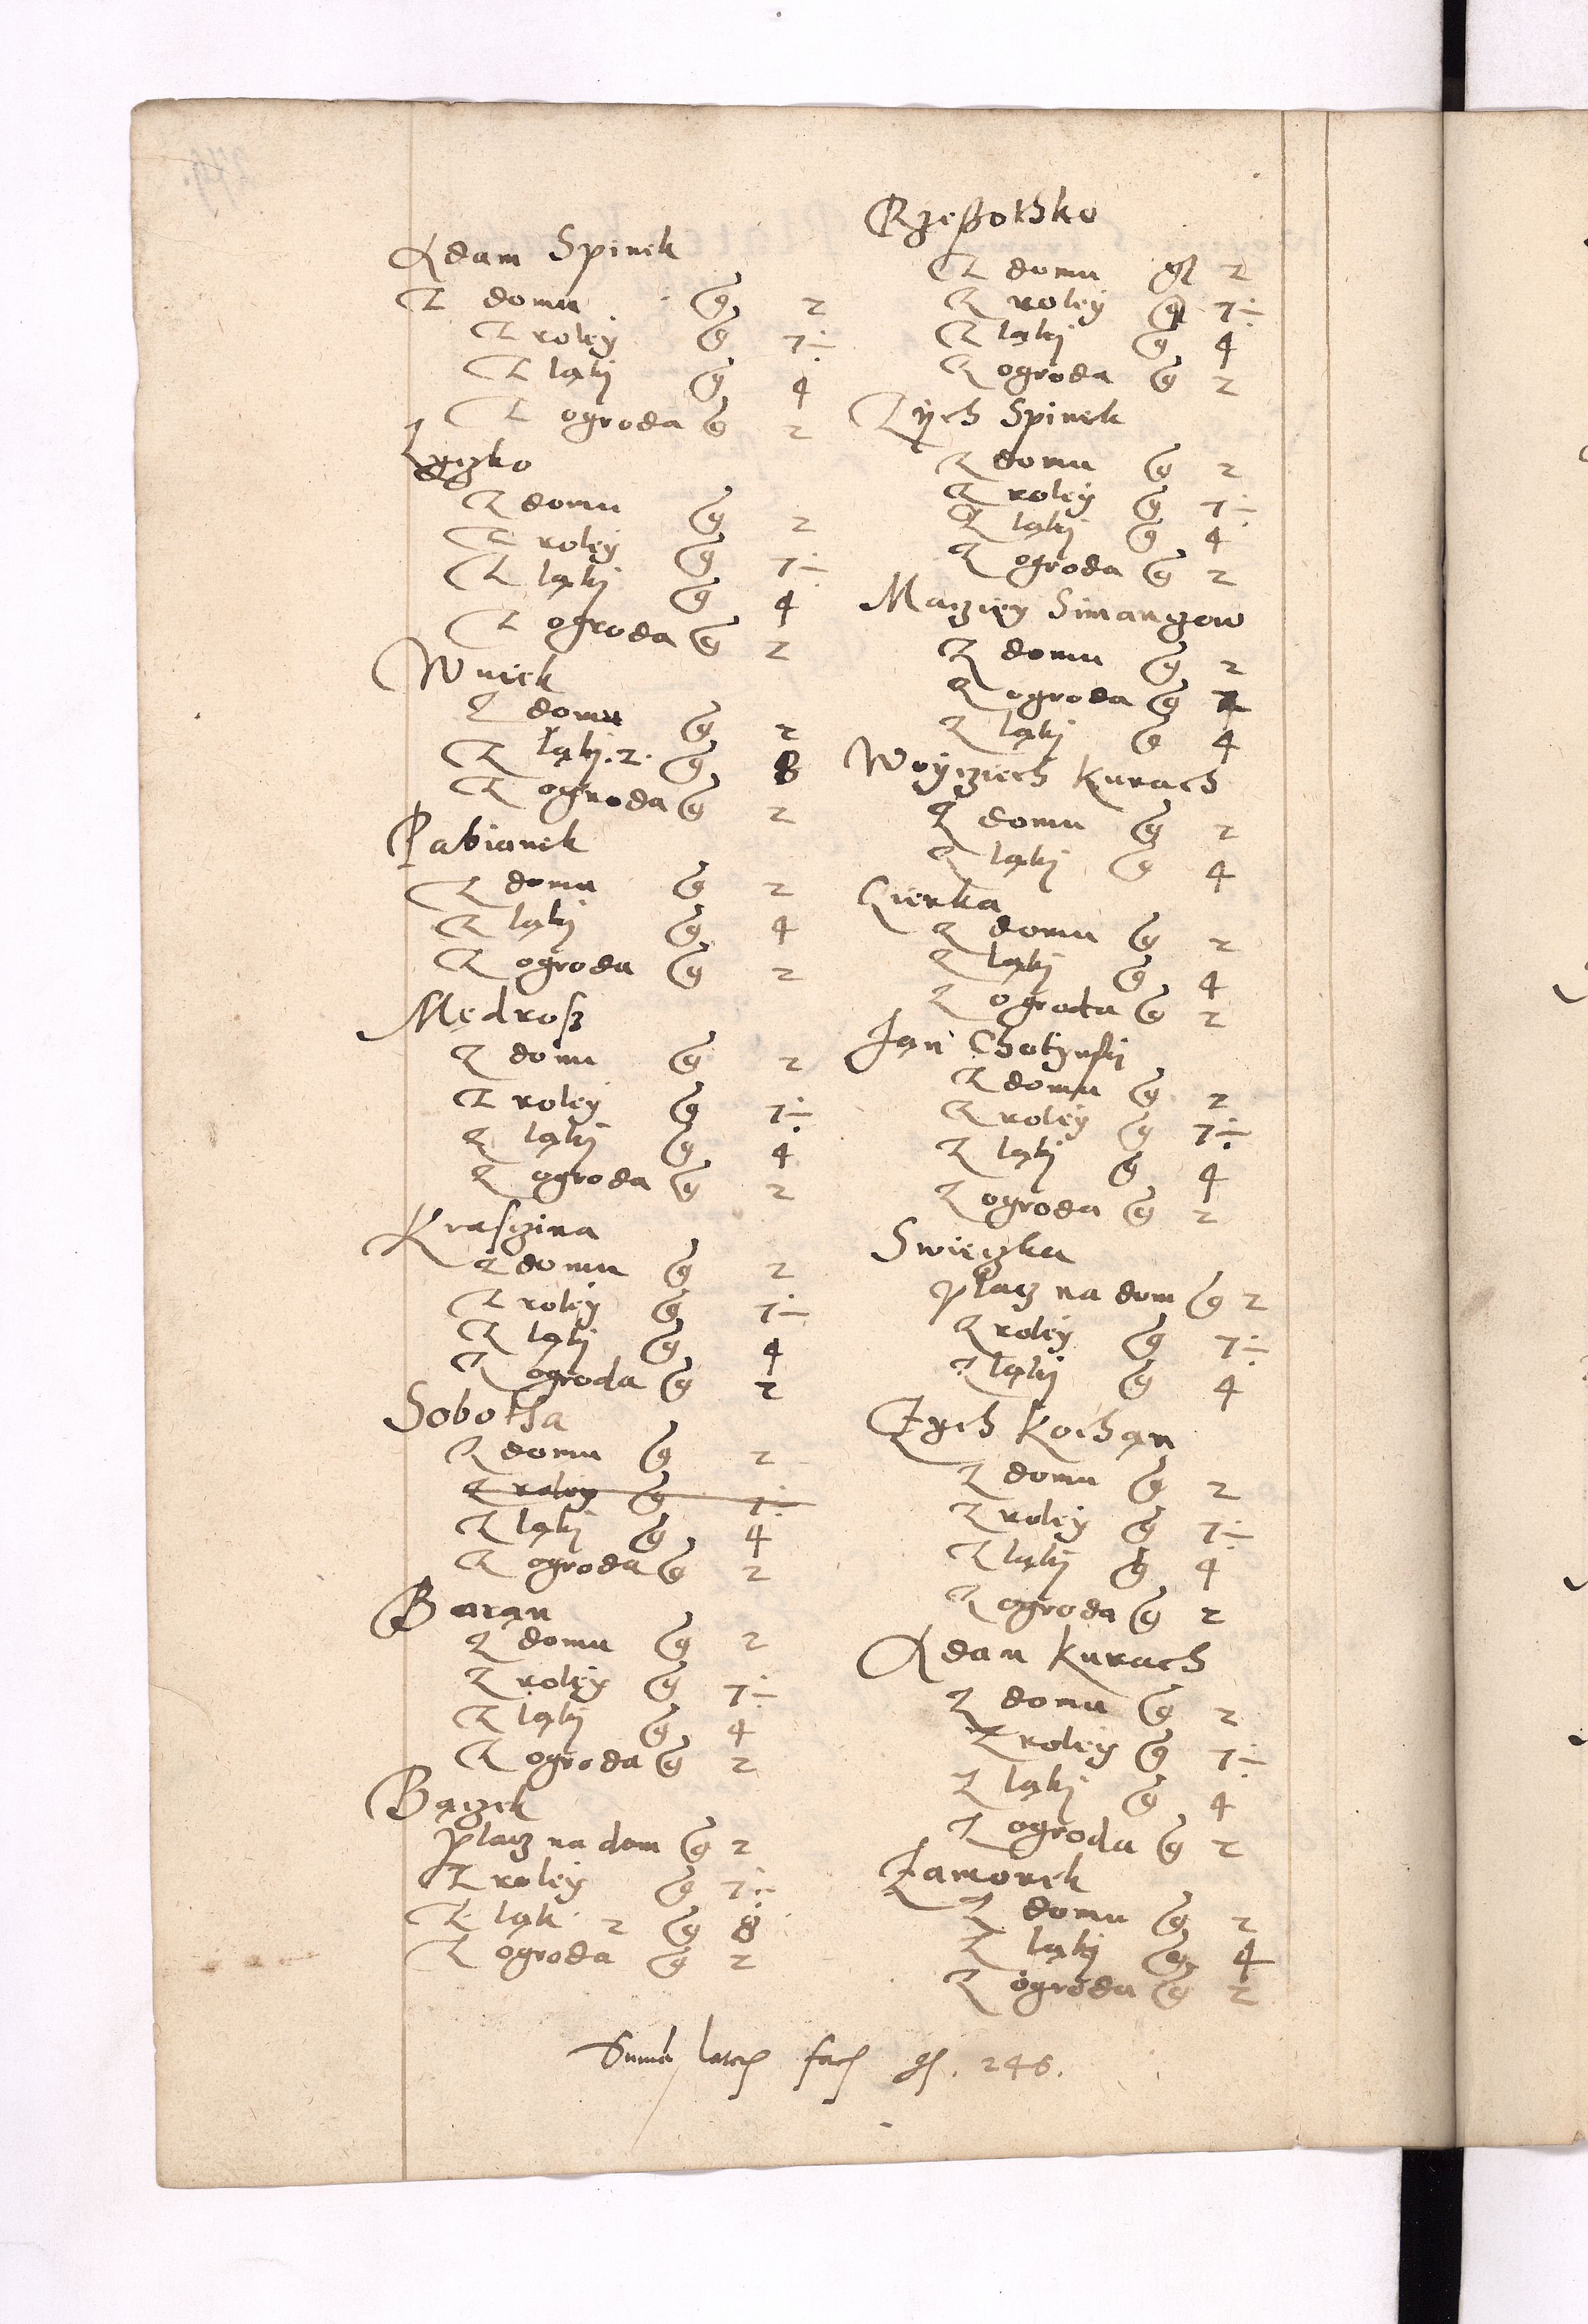 Adam Spinek
Z domu g 2
Z roley g 7÷
Z ląkj g 4
Z ogroda g 2
Zyczko
Z domu g 2
Z roley g 7÷
Z ląkj g 4
Z ogroda g 2
Wnick
Z domu g 2
Z ląkj .2. g 8
Z ogroda g 2
Pabianek
Z domu g 2
Z ląkj g 4
Z ogroda g 2
Mędrosz
Z domu g 2
Z roley g 7÷
Z ląkj g 4
Z ogroda g 2
Krasczina
Z domu g 2
Z roley g 7÷
Z ląkj g 4
Z ogroda g 2
Sobotka
Z domu g 2
Z roley g 7÷
Z ląkj g 4
Z ogroda g 2
Baran
Z domu g 2
Z roley g 7÷
Z ląkj g 4
Z ogroda g 2
Bączek
placz na dom g 2
Z roley g 7÷
Z ląk 2 g 8
Z ogroda g 2
Rzeßothko
Z domu gr 2
Z roley g 7÷
Z ląkj g 4
Z ogroda g 2
Zych Spinek
Z domu g 2
Z roley g 7÷
Z ląkj g 4
Z ogroda g 2
Macziey Simanzow
Z domu g 2
Z ogroda g 2
Z ląkj g 4
Woyciech Kurach
Z domu g 2
Z ląkj g 4
Z domu g 2
Z ląkj g 4
Z ogroda g 2
Jan Chotynskj
Z domu g 2
Z roley g 7÷
Z ląkj g 4
Z ogroda g 2
Swieczka
placz na dom g 2
Z roley g 7÷
Z ląkj g 4
Zych Kochan
Z domu g 2
Z roley g 7÷
Z ląkj g 4
Z ogroda g 2
Adam Kurach
Z domu g 2
Z roley g 7÷
Z ląkj g 4
Z ogroda g 2
Zamorek
Z domu g 2
Z ląkj g 4
Z ogroda g 2
Suma facj g. 246.